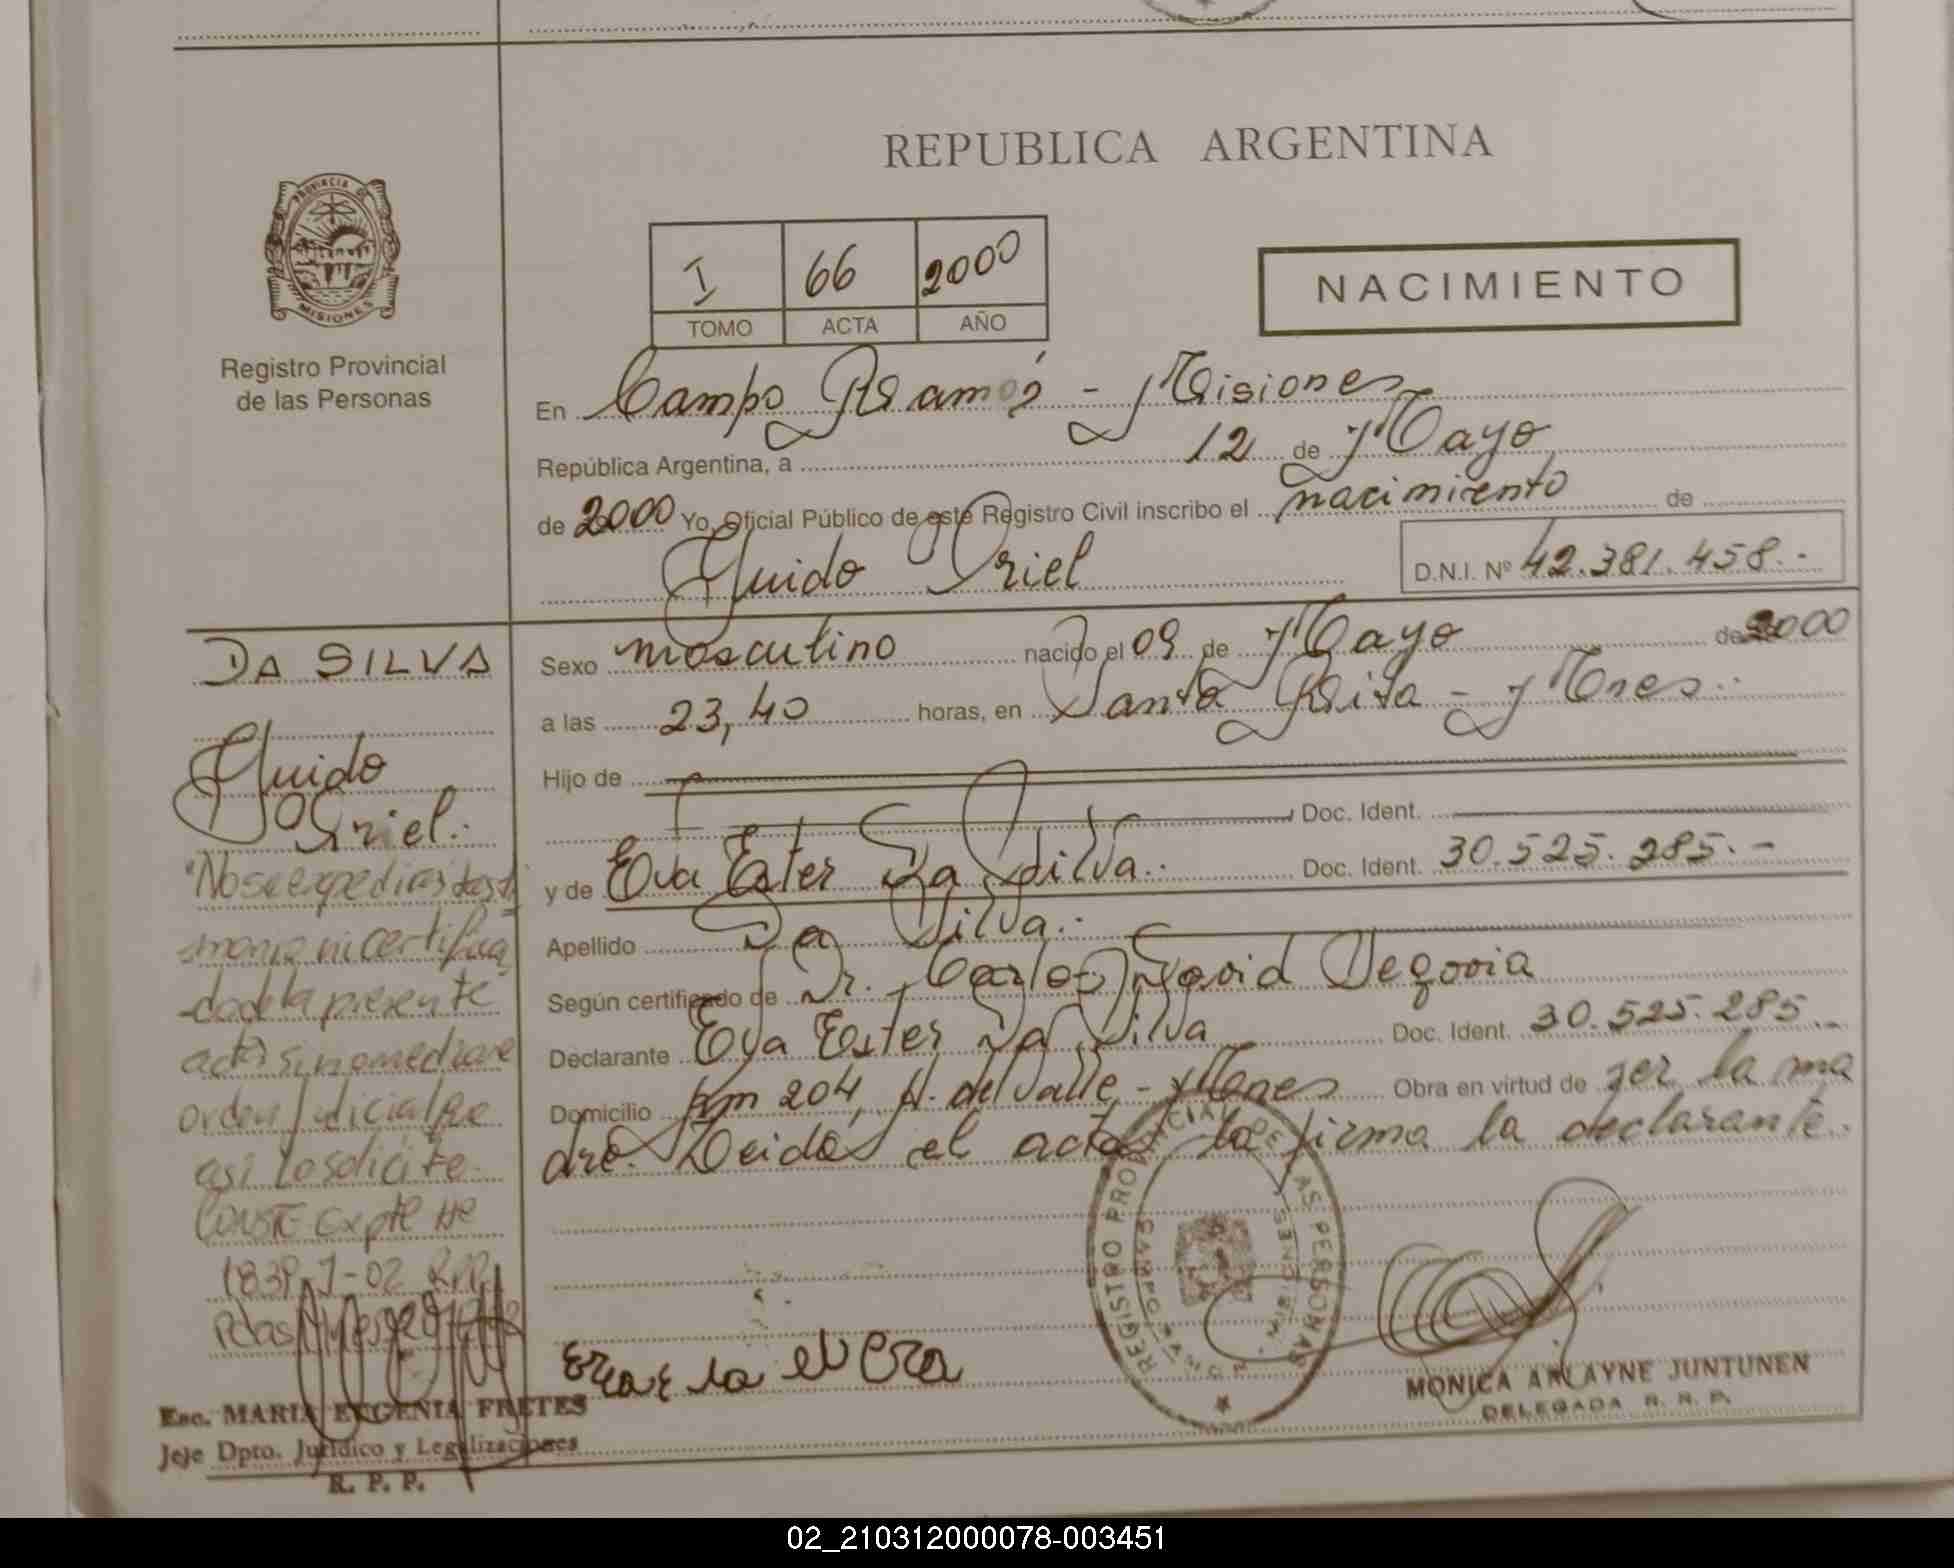 REPUBLICA ARGENTINA
PROVINCIA DE MISIONES
Registro Provincial
de las Personas
I 66 2000
TOMO ACTA AÑO
NACIMIENTO
En Campo Ramón - Misiones
República Argentina, a 12 de Mayo
de 2000 Yo, Oficial Público de este Registro Civil inscribo el nacimiento de
Guido Oriel D.N.I. Nº 42.381.458.-
DA SILVA
Guido
Oriel.-
"No se expedirá testi
monio ni certifica
do de la presente
acta si no mediare
orden judicial que
así lo solicite.
CONSTE Expte Nº
1839 J-02 R.P.
Esc. MARIA EUGENIA FRETES
Jeje Dpto. Jurídico y Legalizaciones
R. P. P.
Sexo masculino nacido el 09 de Mayo de 2000
a las 23,40 horas, en Santa Rita - Mnes.-
Hijo de
Doc. Ident.
y de Eva Ester Da Silva.- Doc. Ident. 30.525.285.-
Apellido Da Silva.-
Según certificado de Dr. Carlos David Segovia
Declarante Eva Ester Da Silva Doc. Ident. 30.525.285.-
Domicilio Km 204, A. del Valle, - Mnes Obra en virtud de ser la ma
dre. Leida el acta la firma la declarante.
REGISTRO PROVINCIAL DE LAS PERSONAS
MONICA ARLAYNE JUNTUNEN
DELEGADA R. R. P.
02_210312000078-003451